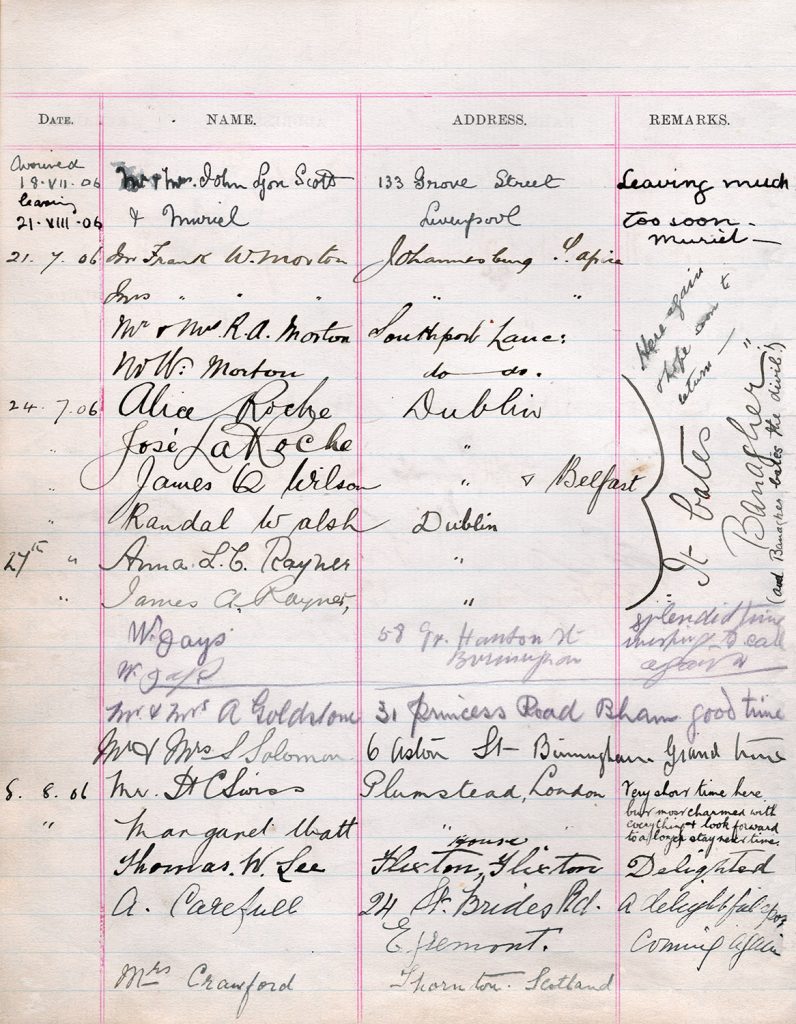 DATE. NAME. ADDRESS. REMARKS.
Arrived
18.VII.06 Mr & Mrs. John Lyon Scott 133 Grove Street Leaving much
leaving
21.VIII.06 & Muriel Liverpool too soon.
Muriel
21.7.06 Mr Frank W. Morton Johannesburg S. Africa
Mrs " " " " "
Mr & Mrs R. A. Morton Southport Lanc:
Morton do do.
Here again
& hope soon to
return
24.7.06 Alice Roche Dublin
" José LaRoche "
" James Wilson " & Belfast
" Randal Walsh Dublin
27th " Anna L. C. Rayner "
" James A. Rayner, "
"It bates
Banagher"
(and Banagher bates the divil!)
W. Jays 58 Gr. Hampton St splendid time
Birmingham to call
W. Jays again
Mr & Mrs A Goldstone 31 Princess Road Bham good time
Mr & Mrs S Solomon 6 Aston St Birmingham. Grand time
8.8.06 Mr. H C Swiss Plumstead, London Very short time here
" Margaret Watt " " but most charmed with
everything & look forward
to a longer stay next time.
House
Thomas. W. Lee Flixton, Flixton Delighted
A. Carefull 24 St. Brides Rd. A delightful spot
Egremont. Coming again
Mrs Crawford Thornton. Scotland